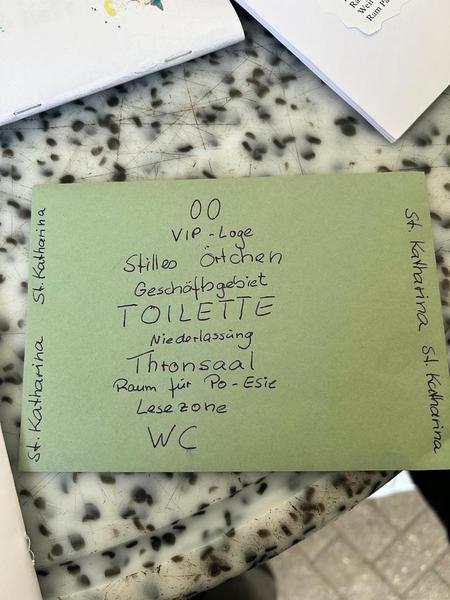 Ra
Wei
Ram Pa
00
VIP-Loge
Stilles Örtchen
Geschäftsgebiet
TOILETTE
Niederlassung
Thronsaal
Raum für Po-Esie
Lesezone
WC
St. Katharina
St. Katharina
St. Katharina
St. Katharina